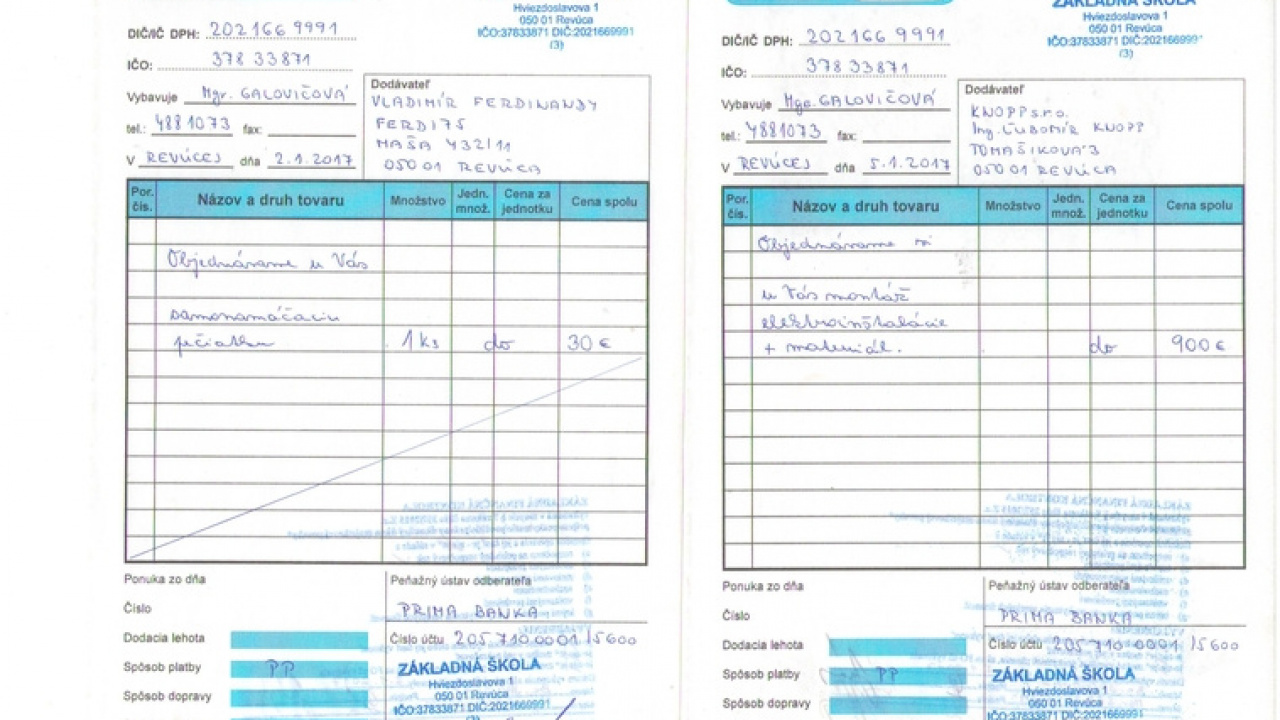 Hviezdoslavova 1
050 01 Revúca
IČO:37833871 DIČ:2021669991
(3)
DIČ/IČ DPH: 202166 9991
IČO: 378 33871
Vybavuje Mgr. GALOVIČOVÁ
tel.: 4881073 fax:
V REVÚCEJ dňa 2.1.2017
Dodávateľ
VLADIMÍR FERDINANDY
FERDI75
MAŠA 432/11
05001 REVÚCA
Por. čís. Názov a druh tovaru Množstvo Jedn. množ. Cena za jednotku Cena spolu
Objednávame u Vás
samonamáčaciu
pečiatku 1 ks do 30 €
Ponuka zo dňa
Číslo
Dodacia lehota
Spôsob platby PP
Spôsob dopravy
Peňažný ústav odberateľa
PRIMA BANKA
Číslo účtu 205 710 0001 /5600
ZÁKLADNÁ ŠKOLA
Hviezdoslavova 1
050 01 Revúca
IČO:37833871 DIČ:2021669991
ZÁKLADNÁ ŠKOLA
Hviezdoslavova 1
050 01 Revúca
IČO:37833871 DIČ:202166999
(3)
DIČ/IČ DPH: 202166 9991
IČO: 378 33871
Vybavuje Mgr. GALOVIČOVÁ
tel.: 4881073 fax:
V REVÚCEJ dňa 5.1.2017
Dodávateľ
KNOPP s.r.o.
Ing. ĽUBOMÍR KNOPP
TOMAŠIKOVA 3
05001 REVÚCA
Por. čís. Názov a druh tovaru Množstvo Jedn. množ. Cena za jednotku Cena spolu
Objednávame si
u Vás montáž
elektroinštalácie
+ materiál. do 900 €
Ponuka zo dňa
Číslo
Dodacia lehota
Spôsob platby PP
Spôsob dopravy
Peňažný ústav odberateľa
PRIMA BANKA
Číslo účtu 205 710 0001 /5600
ZÁKLADNÁ ŠKOLA
Hviezdoslavova 1
050 01 Revúca
IČO:37833871 DIČ:2021669991